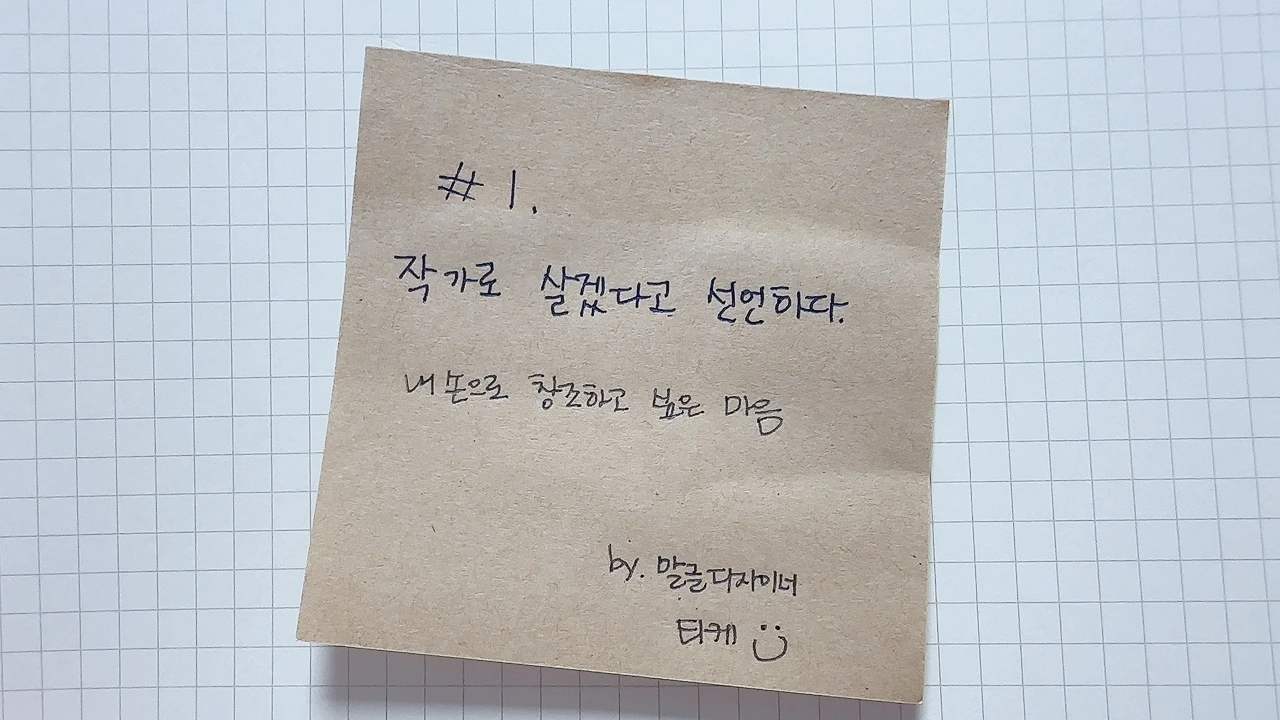 #1.
작가로 살겠다고 선언하다.
내 손으로 창조하고 싶은 마음
by. 말글디자이너
티케